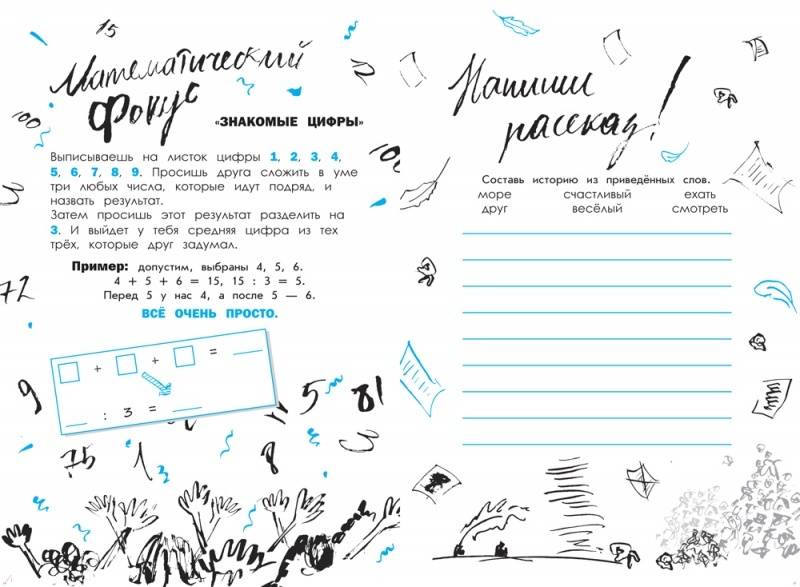 Математический
Фокус
«ЗНАКОМЫЕ ЦИФРЫ»
Выписываешь на листок цифры 1, 2, 3, 4,
5, 6, 7, 8, 9. Просишь друга сложить в уме
три любых числа, которые идут подряд, и
назвать результат.
Затем просишь этот результат разделить на
3. И выйдет у тебя средняя цифра из тех
трёх, которые друг задумал.
Пример: допустим, выбраны 4, 5, 6.
4 + 5 + 6 = 15, 15 : 3 = 5.
Перед 5 у нас 4, а после 5 — 6.
ВСЁ ОЧЕНЬ ПРОСТО.
+ + =
: 3 =
15
12
100
100
3
72
9
5
81
3
75
1
3
8
Напиши
рассказ!
Составь историю из приведённых слов.
море счастливый ехать
друг весёлый смотреть